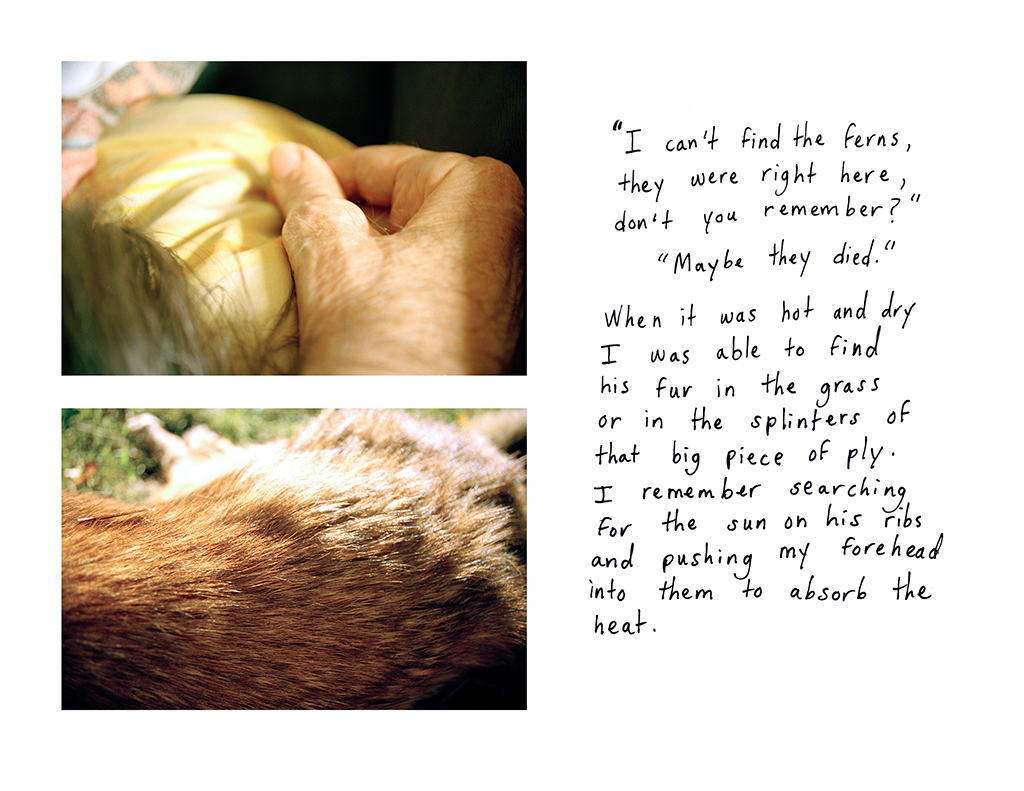 "I can't find the ferns,
they were right here,
don't you remember?"
"Maybe they died."
When it was hot and dry
I was able to find
his fur in the grass
or in the splinters of
that big piece of ply.
I remember searching
for the sun on his ribs
and pushing my forehead
into them to absorb the
heat.